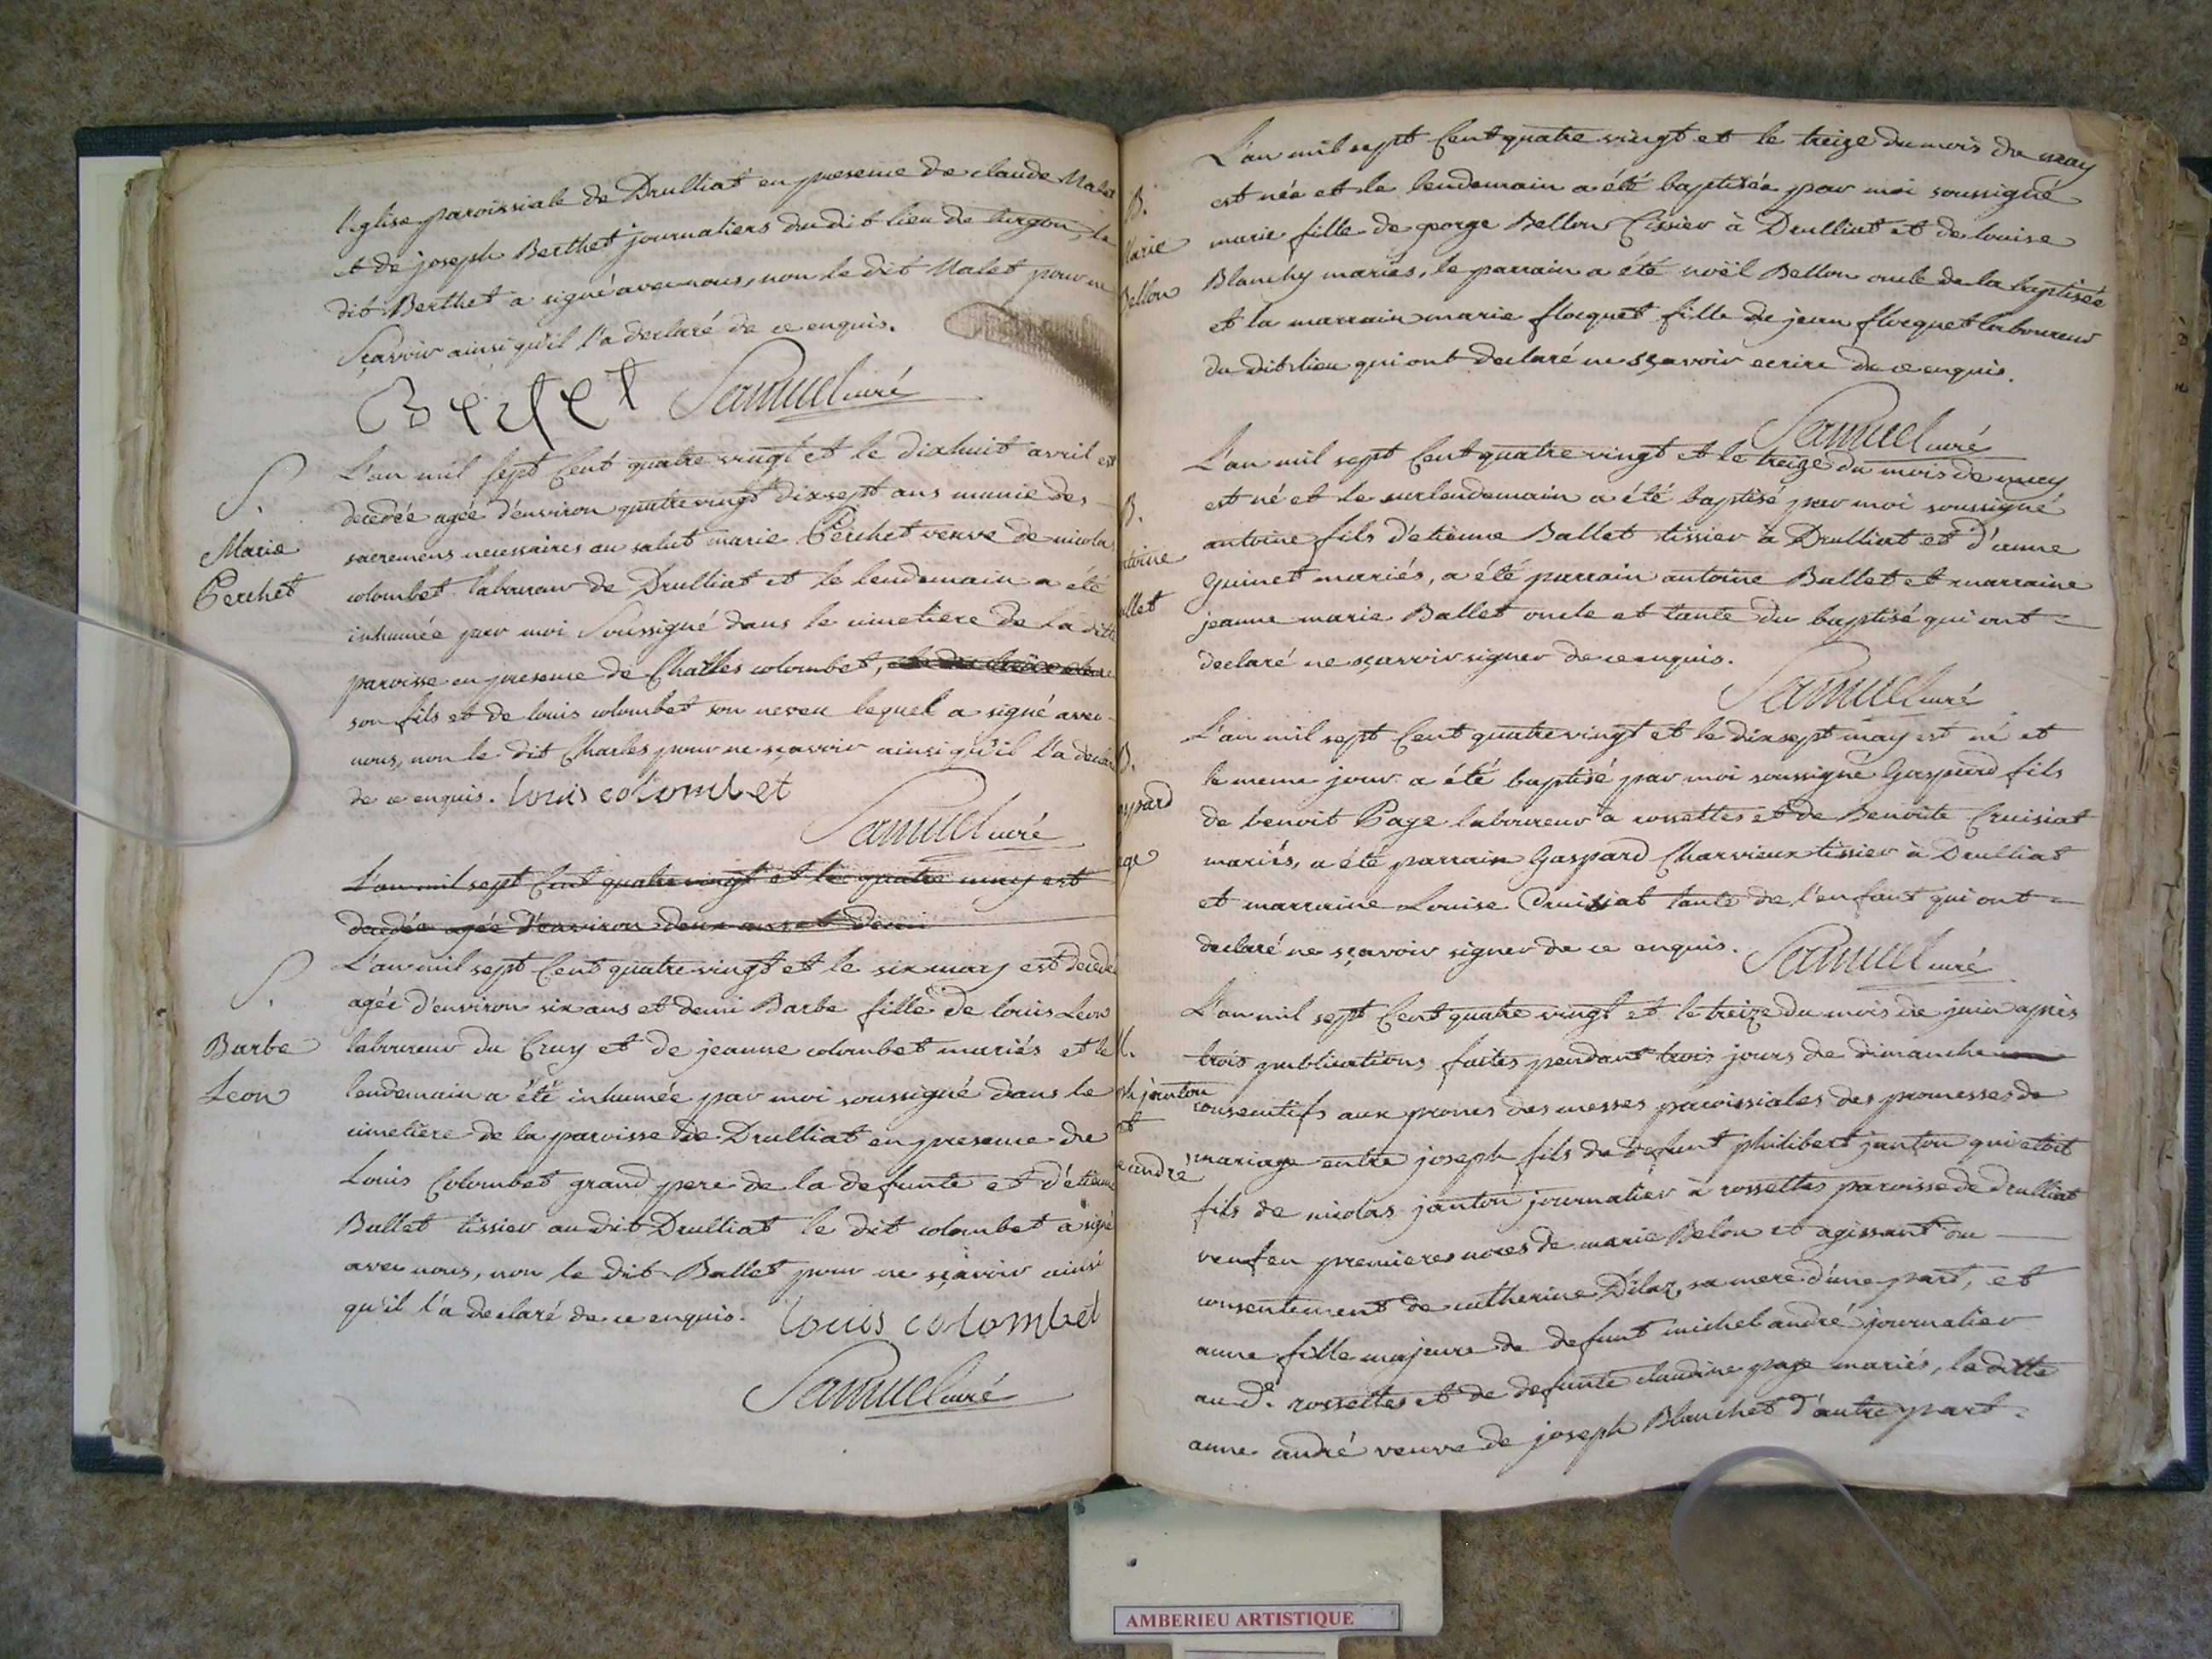 l'eglise paroissiale de Drulliat en presence de claude Malet
et de joseph Berthet journaliers du dit lieu de turgon, le
dit Berthet a signé avec nous, non le dit Malet pour ne
sçavoir ainsi qu'il l'a declaré de ce enquis.
Samuel curé
S.
Marie
Perchet
L'an mil sept Cent quatre vingt et le dixhuit avril est
decedée agée d'environ quatrevingt dixsept ans munie des
sacremens necessaires au salut marie Perchet veuve de nicolas
colombet laboureur de Drulliat et le lendemain a été
inhumée par moi soussigné dans le cimetiere de la ditte
paroisse en presence de Charles colombet,
son fils et de louis colombet son neveu lequel a signé avec
nous, non le dit Charles pour ne sçavoir ainsi qu'il l'a declaré
de ce enquis. louis colombet
Samuel curé
L'an mil sept Cent quatre vingt et le quatre may est
decedée agée d'environ deux ans et demi
S.
Barbe
Leon
L'an mil sept Cent quatre vingt et le six may est decedée
agée d'environ six ans et demi Barbe fille de louis Leon
laboureur du Cruy et de jeanne colombet mariés et le
lendemain a été inhumée par moi soussigné dans le
cimetiere de la paroisse de Drulliat en presence de
Louis Colombet grand pere de la defunte et d'étienne
Ballet tissier au dit Drulliat le dit colombet a signé
avec nous, non le dit Ballet pour ne sçavoir ainsi
qu'il l'a declaré de ce enquis. louis colombet
Samuel curé
B.
Marie
Bellon
L'an mil sept Cent quatre vingt et le treize du mois de may
est née et le lendemain a été baptisée par moi soussigné
marie fille de george Bellon tissier à Drulliat et de louise
Blanchy mariés, le parrain a été noël Bellon oncle de la baptisée
et la marrain marie flocquet fille de jean flocquet laboureur
du dit lieu qui ont declaré ne sçavoir ecrire de ce enquis.
Samuel curé
B.
ntoine
allet
L'an mil sept Cent quatre vingt et le treize du mois de may
est né et le surlendemain a été baptisé par moi soussigné
antoine fils d'etienne Ballet tissier à Drulliat et d'anne
Guinet mariés, a été parrain antoine Ballet et marraine
jeanne marie Ballet oncle et tante du baptisé qui ont
declaré ne sçavoir signer de ce enquis.
Samuel curé
B.
aspard
age
L'an mil sept Cent quatre vingt et le dixsept may est né et
le meme jour a été baptisé par moi soussigné Gaspard fils
de benoit Page laboureur à rossettes et de Benoite Cruisiat
mariés, a été parrain Gaspard Charvieux tissier à Drulliat
et marraine Louise Cruisiat tante de l'enfant qui ont
declaré ne sçavoir signer de ce enquis.
Samuel curé
M.
ph janton
et
e andré
L'an mil sept Cent quatre vingt et le treize du mois de juin après
trois publications faites pendant trois jours de dimanche
consecutifs aux prones des messes paroissiales des promesses de
mariage entre joseph fils de defunt philibert janton qui etoit
fils de nicolas janton journalier à rossettes paroisse de drulliat
veuf en premieres noces de marie Belon et agissant du
consentement de catherine Dilaz sa mere d'une part, et
anne fille majeure de defunt michel andré journalier
au d. rossettes et de defunte claudine page mariés, la ditte
anne andré veuve de joseph Blanchet d'autre part.
AMBERIEU ARTISTIQUE